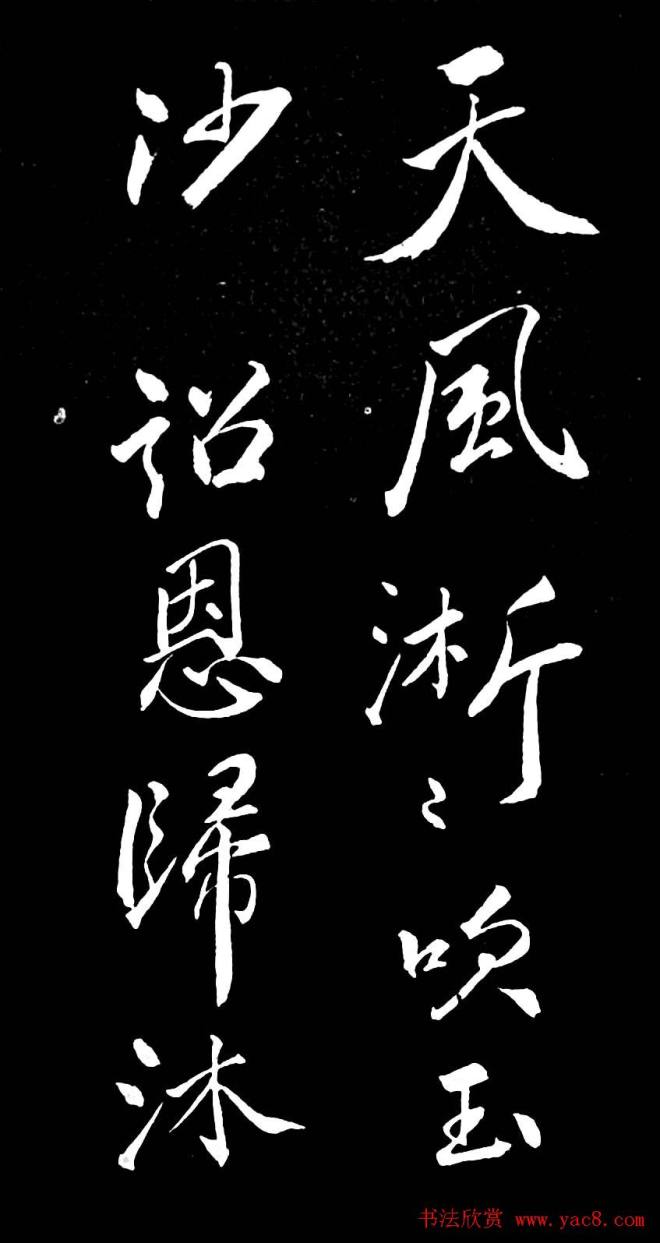 天風淅〻吹玉
沙詔恩歸沐
书法欣赏 www.yac8.com